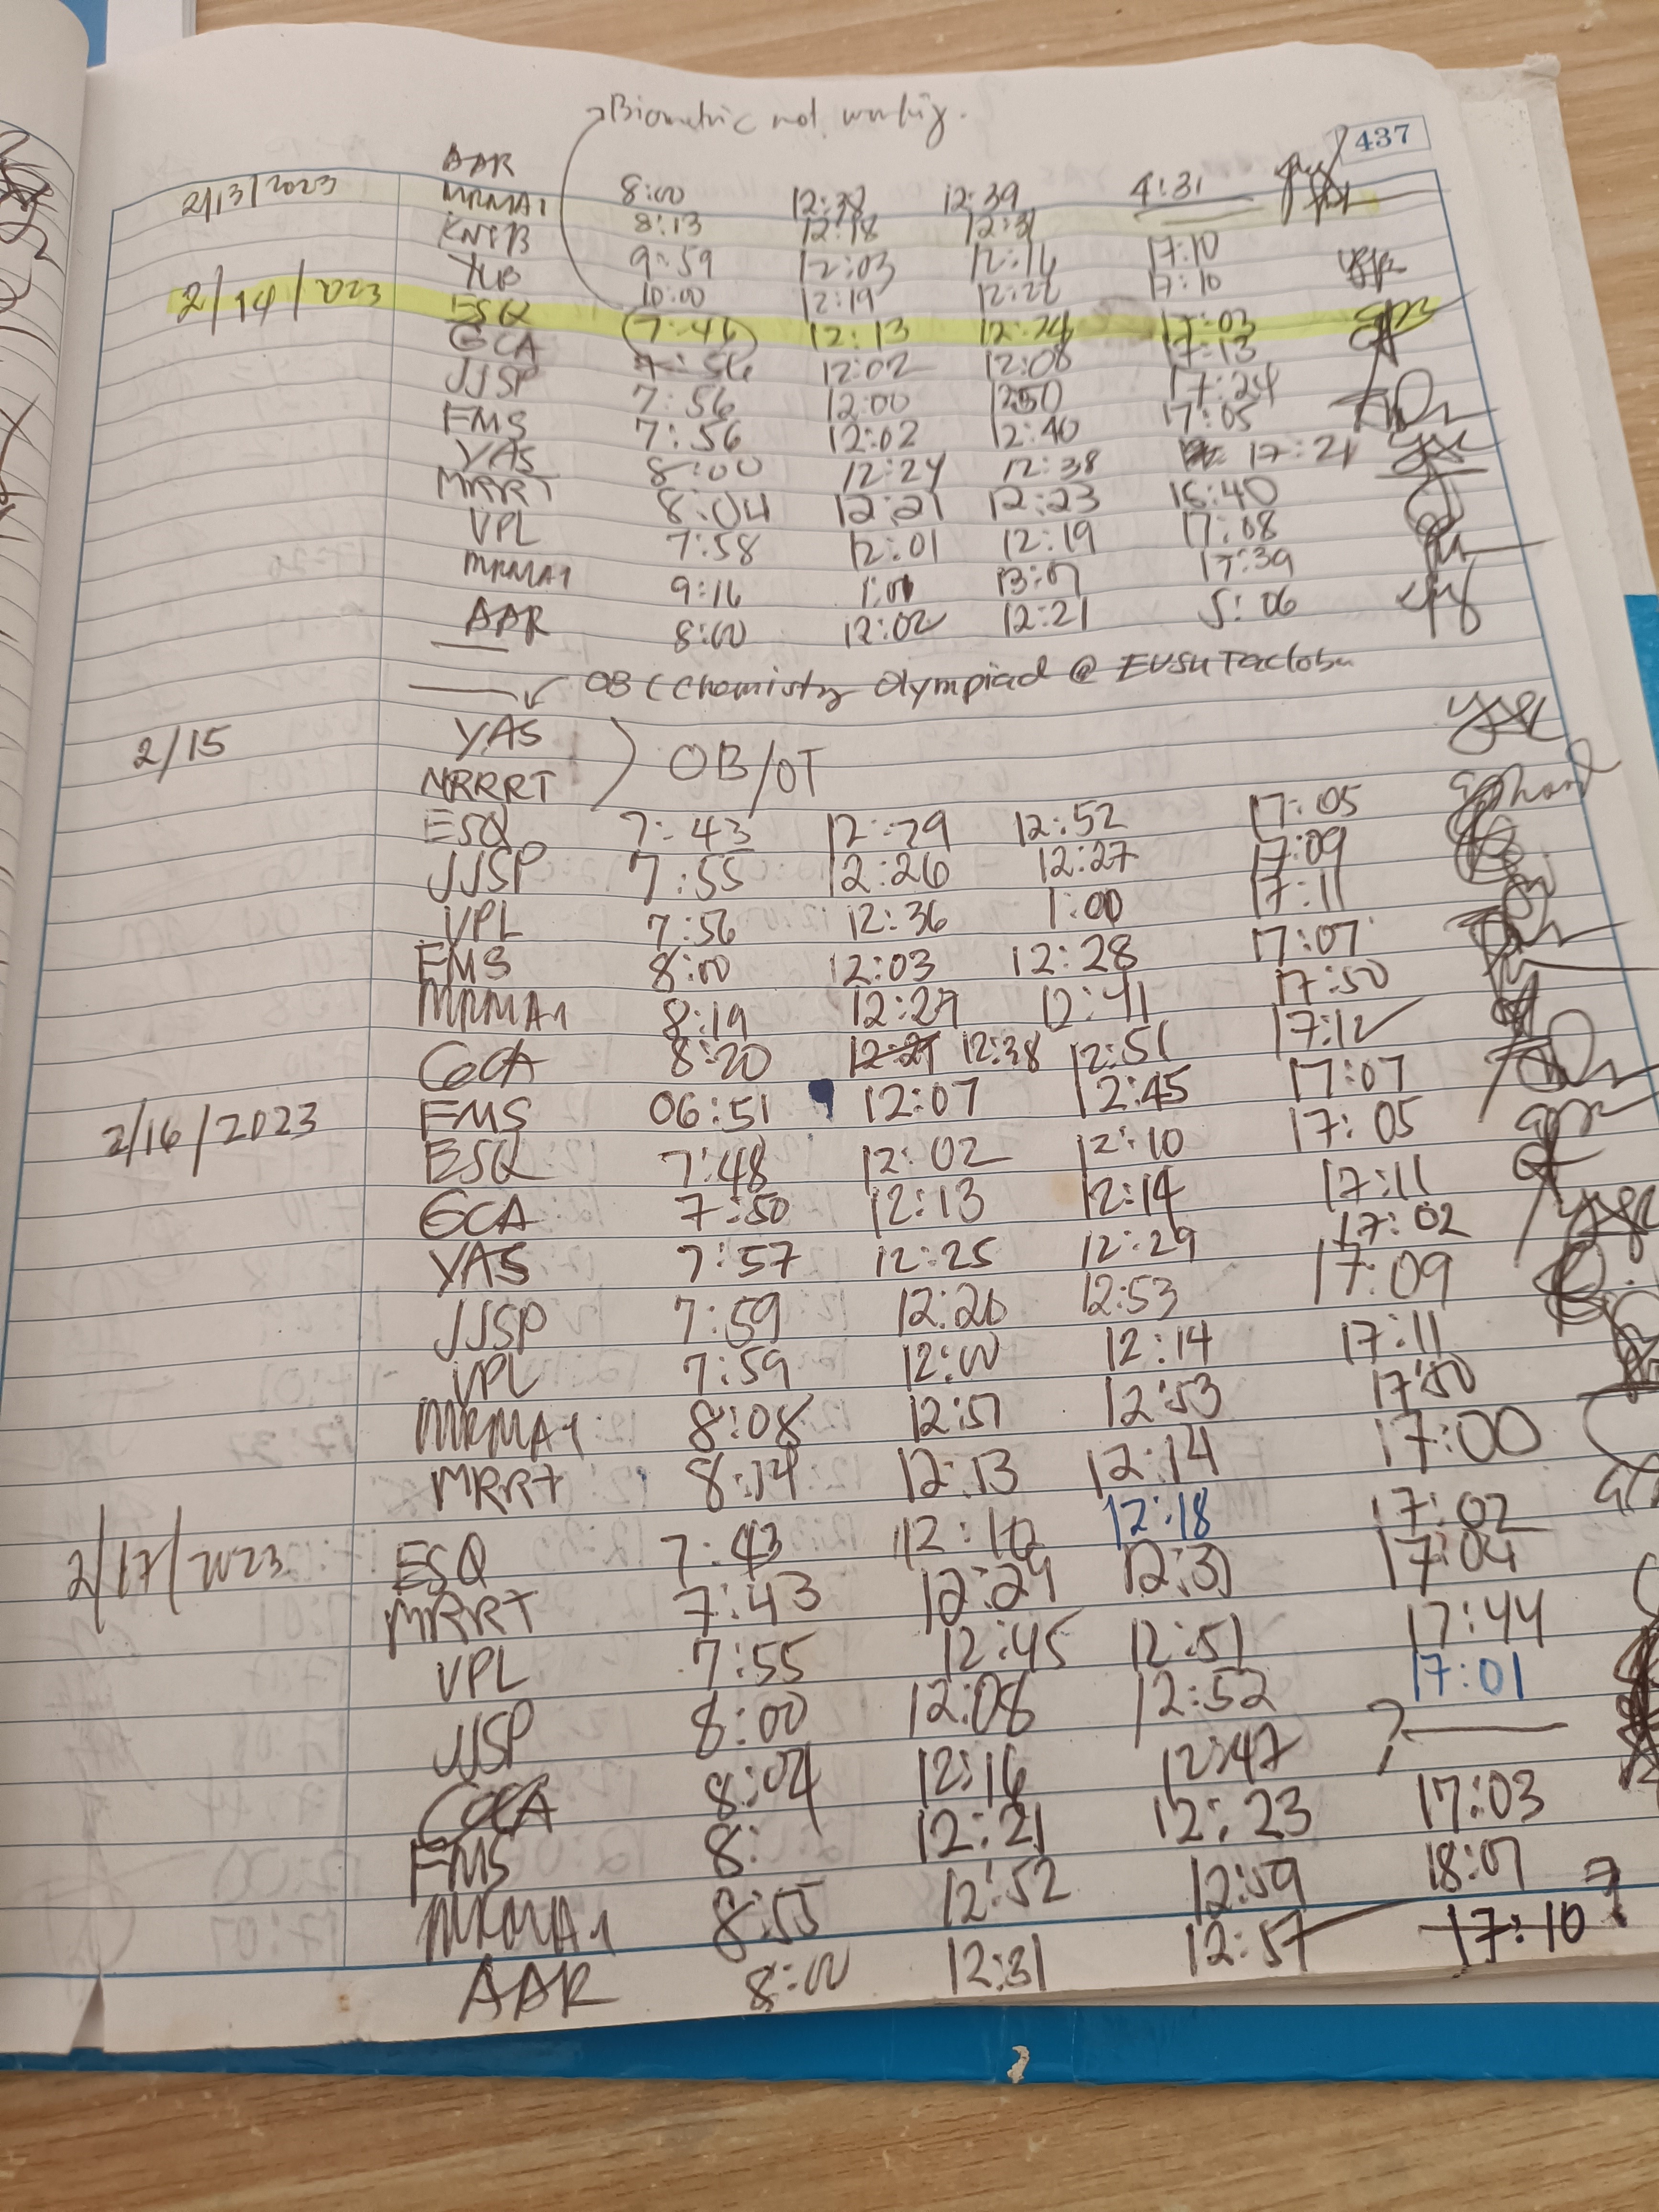 Biometric not working.
437
AAR 8:00 12:38 12:39 4:31
2/13/2023 MRMA1 8:13 12:18 12:31
KNTB 9:59 12:03 12:16 17:10
YUB 10:00 12:19 12:22 17:10
2/14/2023 ESQ 7:46 12:13 12:24 17:03
GCA 7:56 12:02 12:08 17:13
JJSP 7:56 12:00 12:50 17:24
FMS 7:56 12:02 12:40 17:05
YAS 8:00 12:24 12:38 17:21
MRRT 8:04 12:21 12:23 16:40
VPL 7:58 12:01 12:19 17:08
MRMA1 9:16 1:01 13:07 17:39
AAR 8:00 12:02 12:21 5:06
OB (Chemistry Olympiad @ EVSU Tacloban
2/15 YAS
OB/OT
MRRRT
ESQ 7:43 12:29 12:52 17:05
JJSP 7:55 12:26 12:27 17:09
VPL 7:56 12:36 1:00 17:11
FMS 8:00 12:03 12:28 17:07
MRMA1 8:19 12:27 12:41 17:50
GCA 8:20 12:27 12:38 12:51 17:12
2/16/2023 FMS 06:51 12:07 12:45 17:07
ESQ 7:48 12:02 12:10 17:05
GCA 7:50 12:13 12:14 17:11
YAS 7:57 12:25 12:29 17:02
JJSP 7:59 12:20 12:53 17:09
VPL 7:59 12:00 12:14 17:11
MRMA1 8:08 12:51 12:53 17:50
MRRT 8:14 12:13 12:14 17:00
2/17/2023 ESQ 7:43 12:10 12:18 17:02
MRRT 7:43 12:29 12:31 17:04
VPL 7:55 12:45 12:51 17:44
JJSP 8:00 12:08 12:52 17:01
GCA 8:04 12:16 12:47 ?
FMS 8: 12:21 12:23 17:03
MRMA1 8:55 12:52 12:59 18:07
AAR 8:00 12:31 12:57 17:10 ?